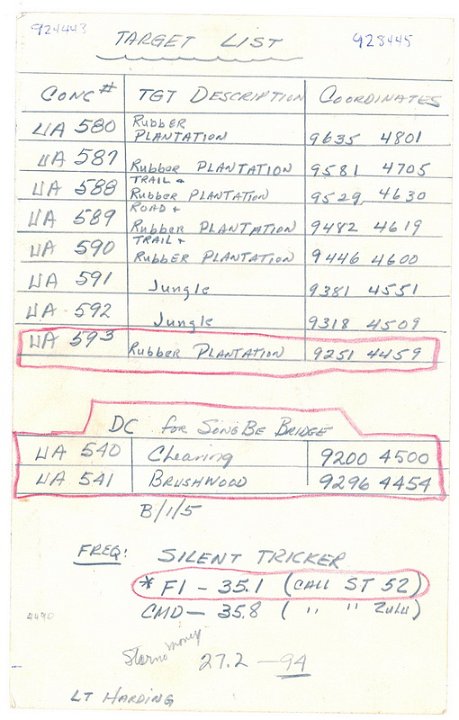 924443 928445
TARGET LIST
CONC # TGT DESCRIPTION COORDINATES
UA 580 RUBBER PLANTATION 9635 4801
UA 587 RUBBER PLANTATION 9581 4705
UA 588 TRAIL + RUBBER PLANTATION 9529, 4630
UA 589 ROAD + RUBBER PLANTATION 9482 4619
UA 590 TRAIL + RUBBER PLANTATION 9446 4600
UA 591 Jungle 9381 4551
UA 592 Jungle 9318 4509
UA 593 Rubber PLANTATION 9251 4459
DC for SONG BE BRIDGE
UA 540 Clearing 9200 4500
UA 541 BRUSHWOOD 9296 4454
B/1/5
FREQ: SILENT TRICKER
* F1 - 35.1 (CALL ST 52)
CMD - 35.8 ( " " ZULU)
money
27.2 - 94
LT HARDING